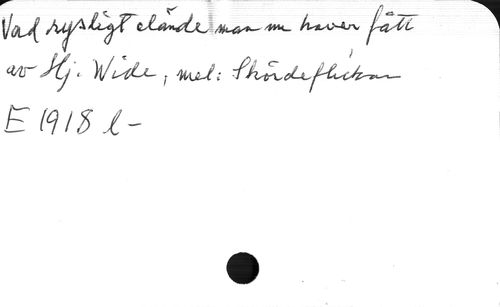 Vad rysligt elände man nu haver fått
av Hj. Wide, mel: Skördeflickan
E 1918 l-